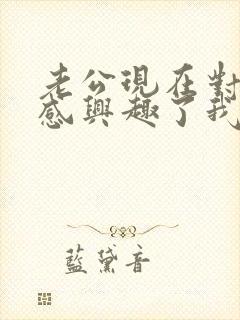 老公現在對
感興趣了我
藍黛音